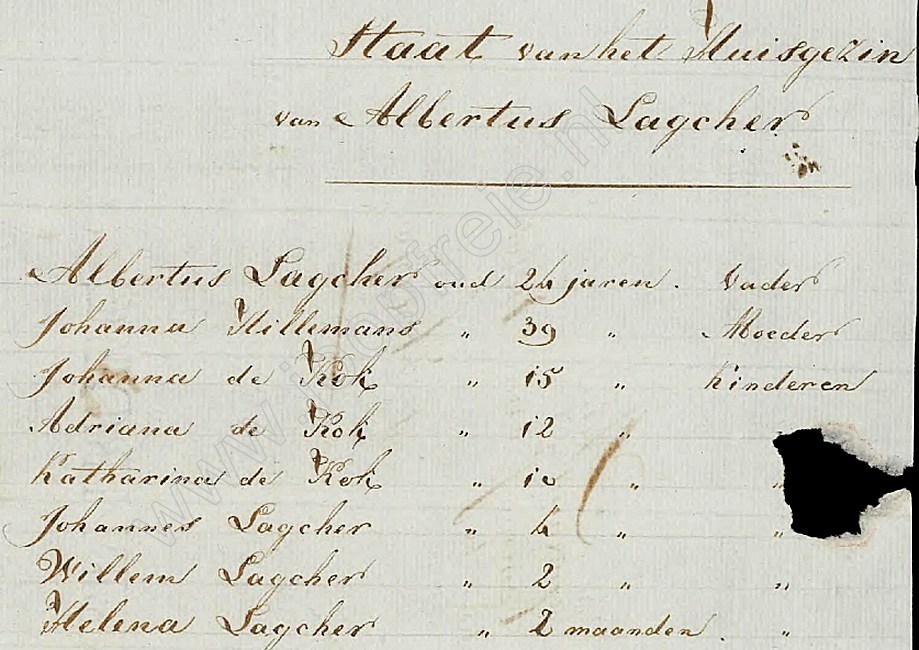 Staat van het Huisgezin
van Albertus Lagcher
Albertus Lagcher oud 24 jaren. Vader
Johanna Hillemans " 39 " Moeder
Johanna de Kok " 15 " Kinderen
Adriana de Kok " 12 " "
Katharina de Kok " 10 " "
Johannes Lagcher " 4 " "
Willem Lagcher " 2 " "
Helena Lagcher " 2 maanden. "